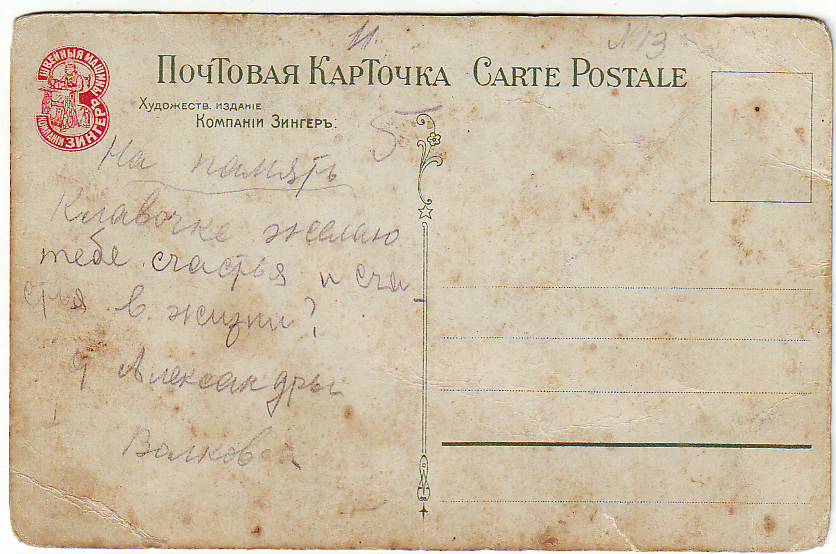 И.
№13
ШВЕЙНЫЯ МАШИНЫ
КОМПАНІИ ЗИНГЕРЪ
ПОЧТОВАЯ КАРТОЧКА CARTE POSTALE
ХУДОЖЕСТВ. ИЗДАНІЕ
КОМПАНІИ ЗИНГЕРЪ.
5
На память
Клавочке желаю
тебе счастья и сча
стья в жизни?
Александры
Волковой